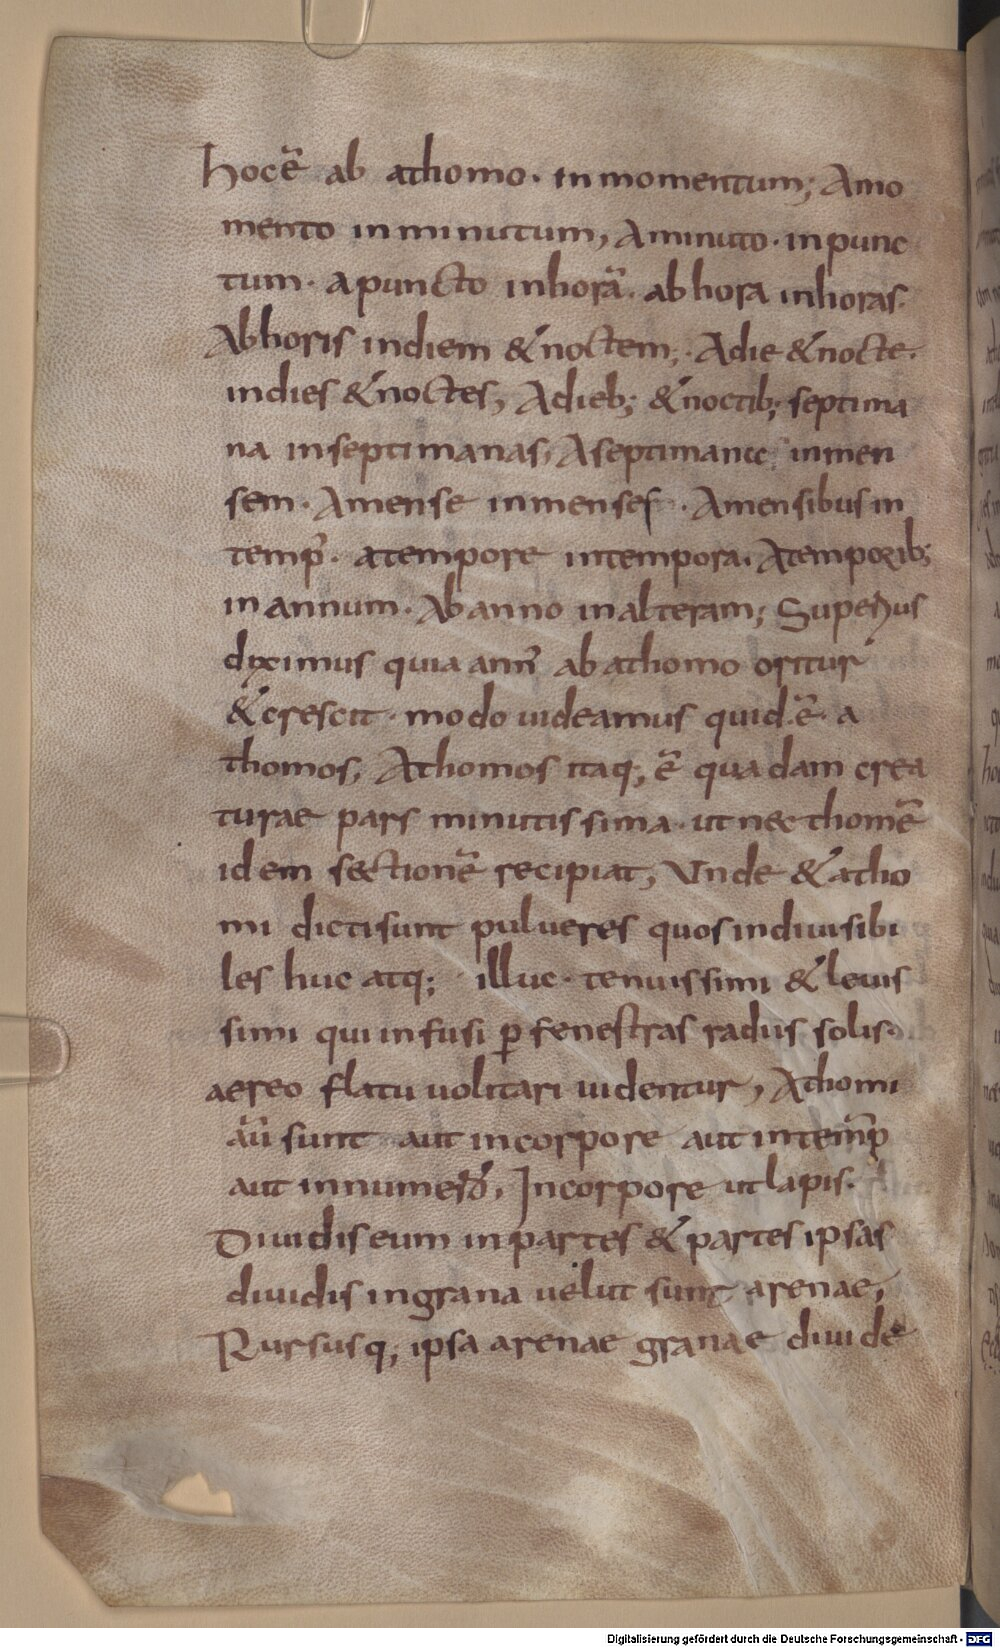 hoc ē ab athomo. in momentum; Amo
mento in minutum, A minuto. in punc
tum. a puncto in horā. ab hora in horas.
Ab horis in diem & noctem;. A die & nocte.
in dies & noctes, A dieb; & noctib; septima
na in septimanas, A septimanis in men
sem. A mense in menses. A mensibus in
temp̄. a tempore in tempora. A temporib;
in annum. Ab anno in alteram; Superius
diximus quia ann̄ ab athomo oritur
& crescit. modo uideamus quid ē. a
thomos, Athomos itaq; ē quadam crea
turae pars minutissima. ut nec thomē
idem sectionē recipiat, Vnde & atho
mi dicti sunt pulueres quos indiuisibi
les huc atq; illuc. tenuissimi & leuis
simi qui infusi ꝑ fenestras radiis solis
aereo flatu uolitari uidentur, Athomi
aū sunt aut in corpore aut in temp̄
aut in numero, In corpore ut lapis.
Diuidis eum in partes & partes ipsas
diuidis in grana uelut sunt arenae,
Rursusq; ipsa arenae granae diuide
Digitalisierung gefördert durch die Deutsche Forschungsgemeinschaft - DFG